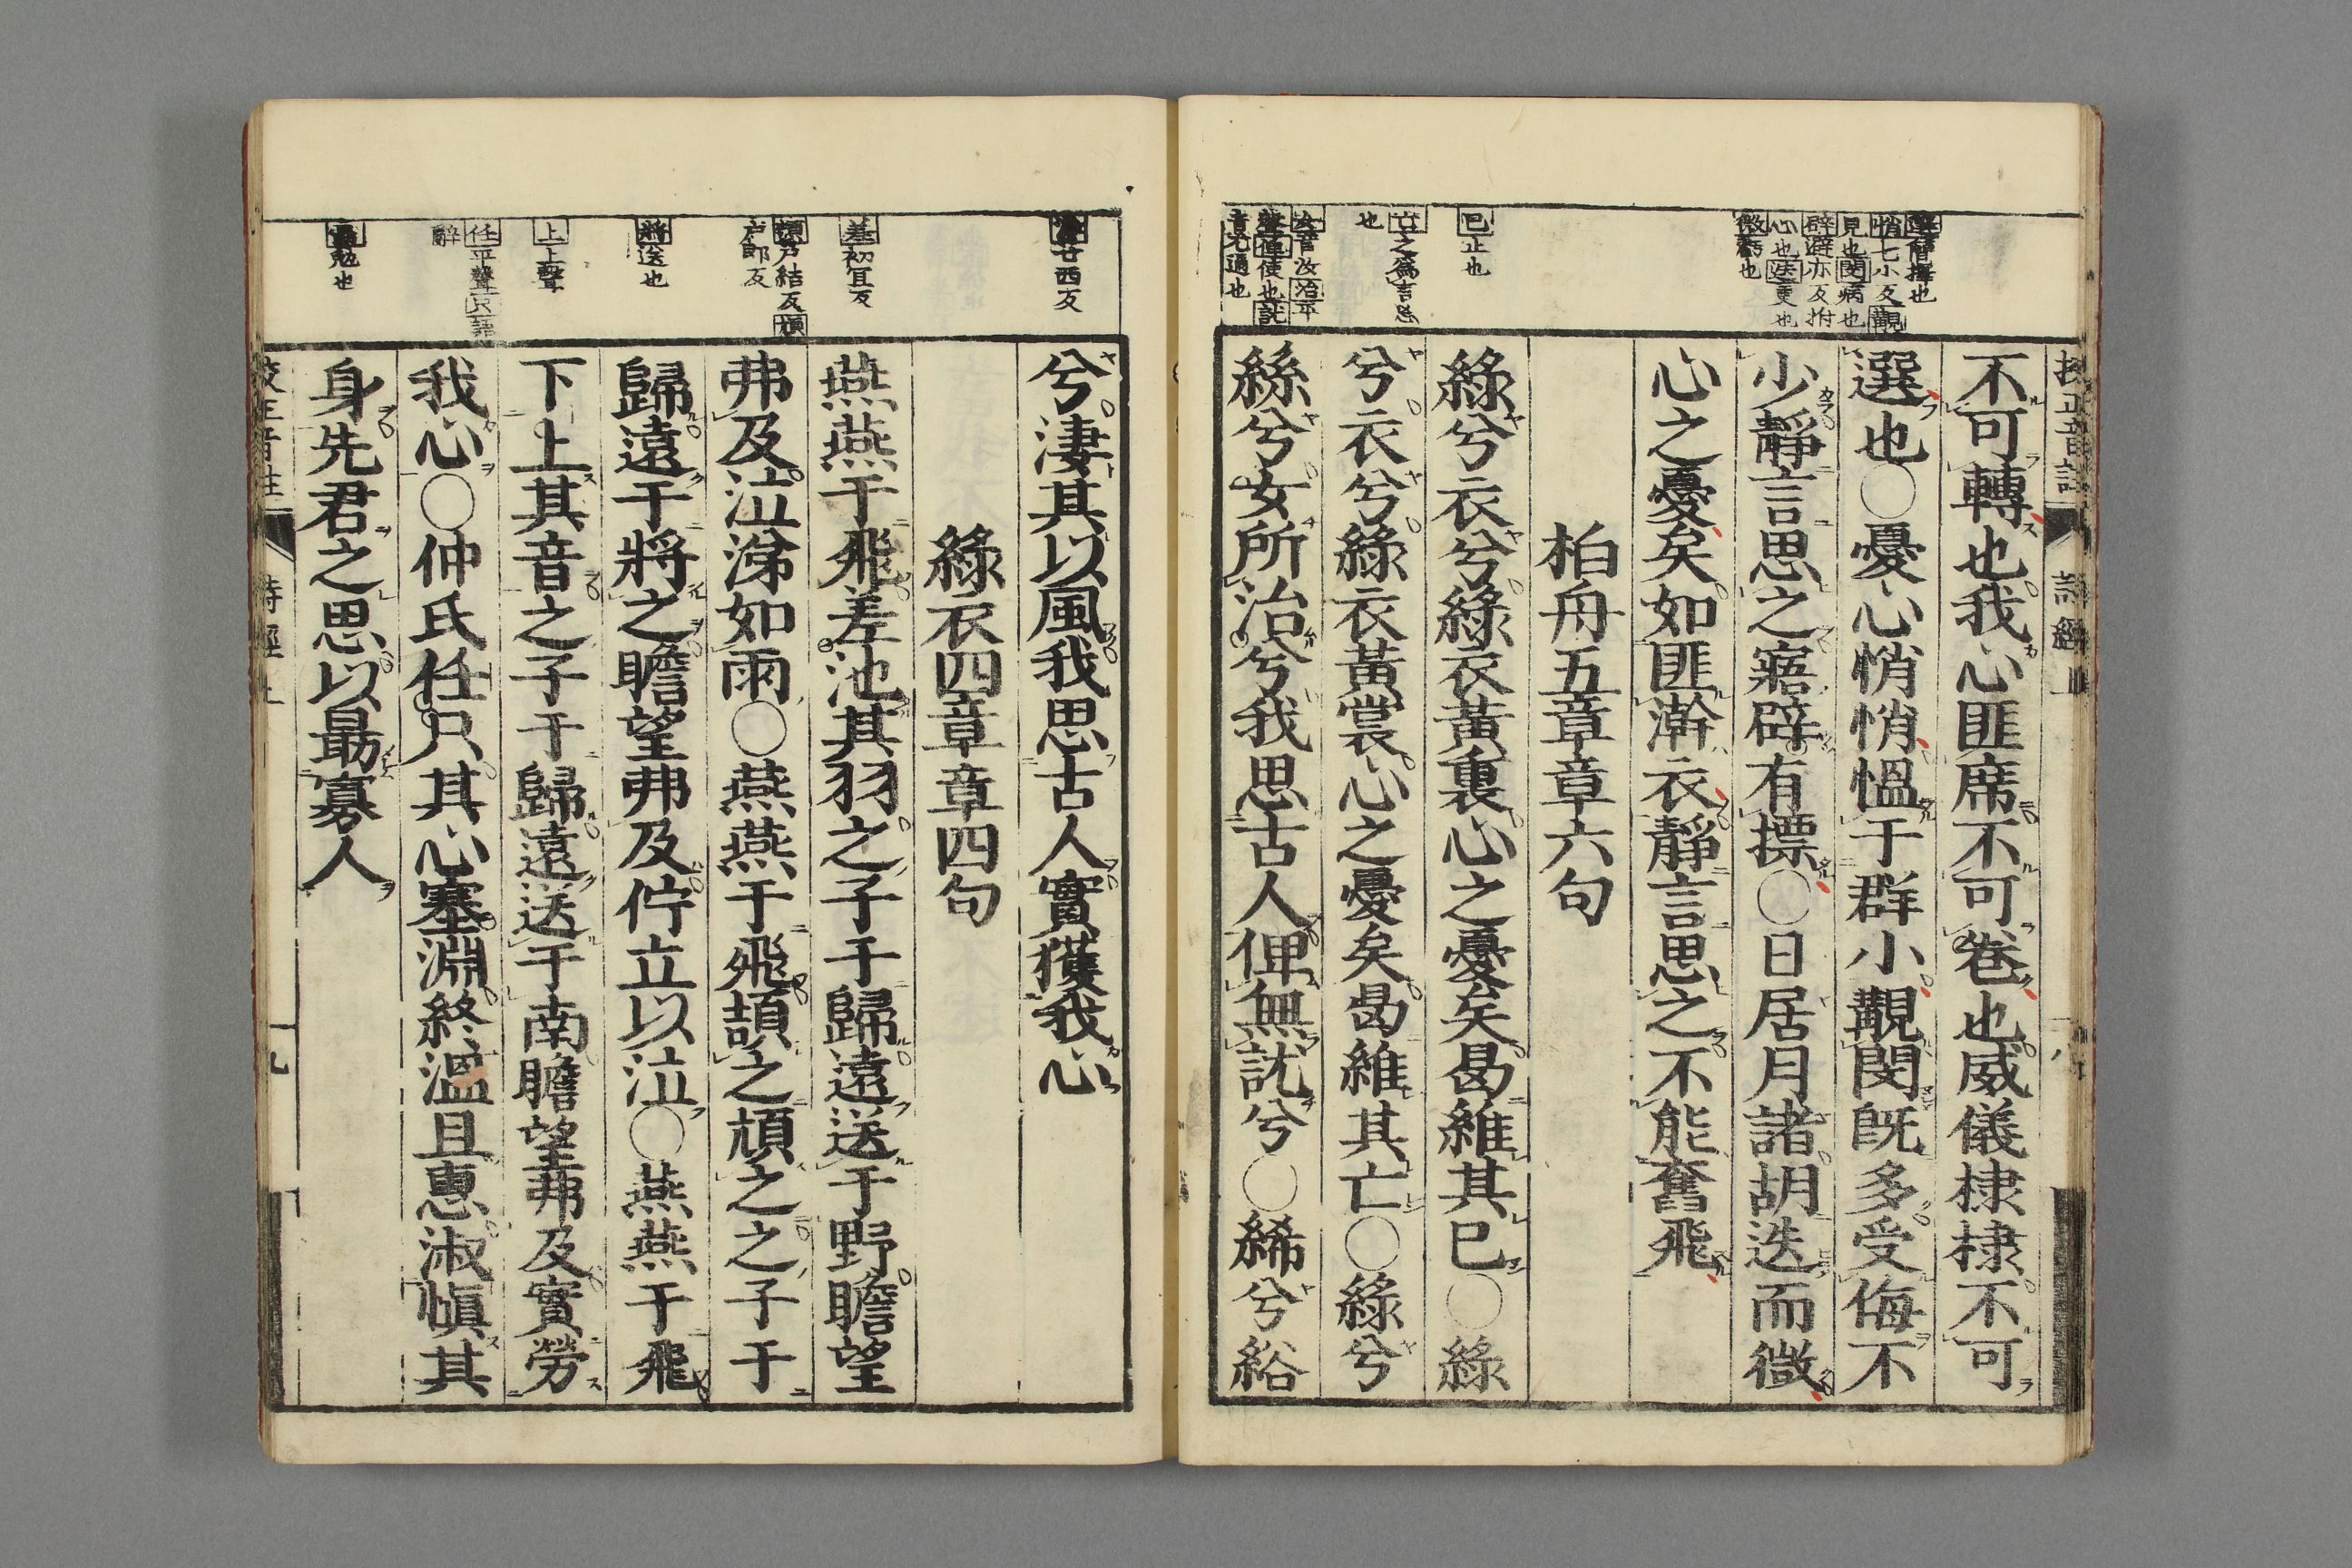 不可轉也我心匪席不可卷也威儀棣棣不可
選也〇憂心悄悄慍于群小覯閔既多受侮不
少靜言思之寤辟有摽〇日居月諸胡迭而微
心之憂矣如匪澣衣靜言思之不能奮飛
柏舟五章章六句
綠兮衣兮綠衣黃裏心之憂矣曷維其已〇綠
兮衣兮綠衣黃裳心之憂矣曷維其亡〇綠兮
絲兮女所治兮我思古人俾無訧兮〇絺兮綌
悄七小反覯
見也閔病也
辟避亦反拊
心也迭更也
微虧也
已止也
亡之為言忘
也
女音汝治平
聲俾使也訧
音尤過也
兮淒其以風我思古人實獲我心
綠衣四章章四句
燕燕于飛差池其羽之子于歸遠送于野瞻望
弗及泣涕如雨〇燕燕于飛頡之頏之之子于
歸遠于將之瞻望弗及佇立以泣〇燕燕于飛
下上其音之子于歸遠送于南瞻望弗及實勞
我心〇仲氏任只其心塞淵終溫且惠淑愼其
身先君之思以勗寡人
差初宜反
頡戶結反頏
戶郎反
將送也
上上聲
任平聲只語
辭
勗勉也
詩經上
九